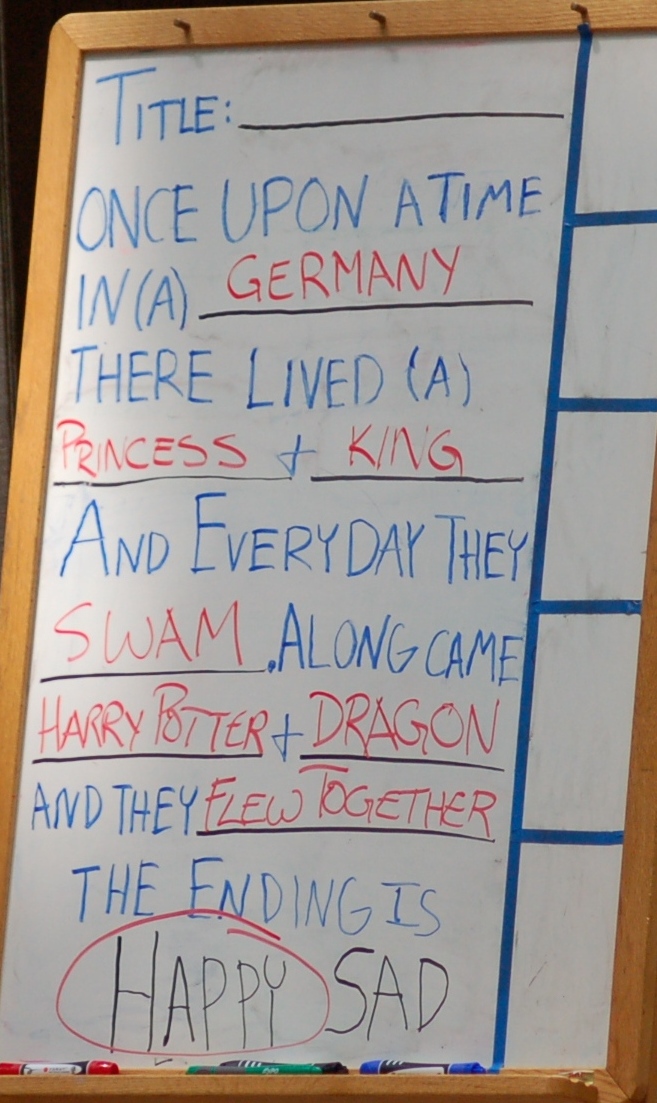 TITLE:
ONCE UPON A TIME
IN (A) GERMANY
THERE LIVED (A)
PRINCESS + KING
AND EVERYDAY THEY
SWAM. ALONG CAME
HARRY POTTER + DRAGON
AND THEY FLEW TOGETHER
THE ENDING IS
HAPPY SAD